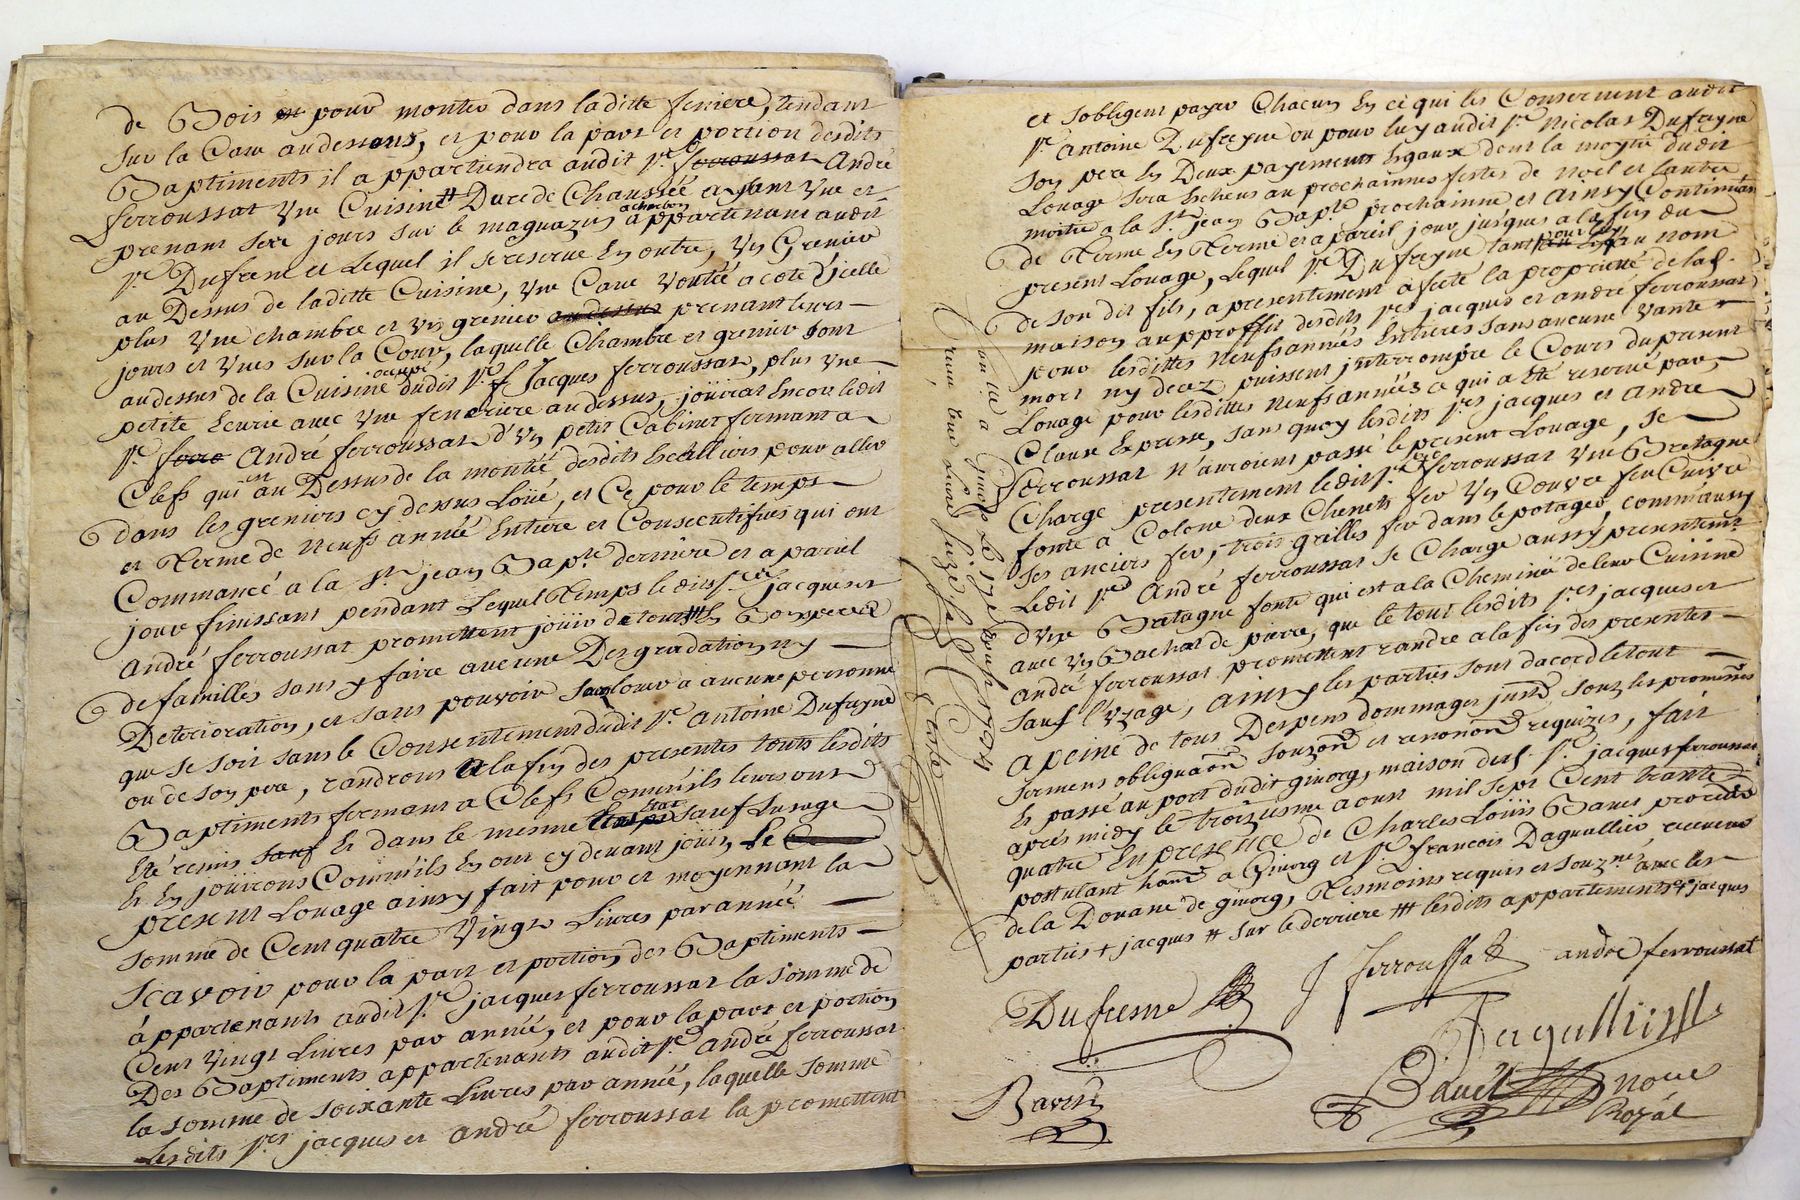 de Bois pour monter dans laditte feniere, tendant
sur la Cave audessous, et pour la part et portion desdits
Baptiments il appartiendra audit Sr. ferroussat André
ferroussat Une Cuisine # Du rede Chaussée ayant Vue et
prenant ses jours sur le magnazin a charbon appartenant audit
Sr. Dufrene et Lequel il se reserve En outre, Un Grenier
au Dessus de laditte Cuisine, Une Cave Voutée a coté d'icelle
plus Une chambre et Un grenier au dessus prenant leurs
jours et Vues sur la Cour, laquelle Chambre et grenier sont
audessus de la Cuisine occupé dudit Sr. Jacques ferroussat, plus Une
petite Ecurie avec Une feneriere audessus, joüirat Encor ledit
Sr. ferro André ferroussat d'Un petit Cabinet fermant a
Clefs qui est au Dessus de la montée desdits Escalliers pour aller
dans les greniers cy dessus Loüé, et Ce pour le temps
et Terme de Neufs année Entiere et Consecutifves qui ont
Commancé a la St. jean Bapte. derniere et a pariel
jour finissant pendant Lequel Temps lesdits Srs. jacques et
André ferroussat promettent joüir de tout # En Bons peres
de familles sans y faire aucune Desgradation ny
Deterioration, et sans pouvoir sous louer a aucune personne
que se soit sans le Consentement dudit Sr. Antoine Dufreyne
ou de son pere, randront A la fin des presentes touts lesdits
Baptiments fermant a Clefs Comm'ils leurs ont
Eté remis sauf Et dans le mesme Etat sauf Lusage
Et En joüiront Comm'ils En ont cy devant joüis, Le
present Louage ainsy fait pour et moyennant la
somme de Cent quatre Vingts Livres par année
Scavoir pour la part et portion des Baptiments
appartenants audit Sr. jacques ferroussat la somme de
Cent Vingt Livres par année, et pour la part et portion
Des Baptiments appartenants audit Sr. André ferroussat
la somme de soixante Livres par année, laquelle somme
lesdits Srs. jacques et André ferroussat la promettent
et sobligent payer Chacun En ce qui les Consernent audit
Sr. Antoine Dufreyne ou pour luy audit Sr. Nicolas Dufreyne
son pere En Deux payements Egaux dont la moytié dudit
Louage sera Echeus au prochainnes festes de noel et lautre
moitié a la St. jean Bapte. prochainne et Ainsy Continuer
de Terme En Terme et a pareil jour jusques a la fin du
present Louage, Lequel Sr. Dufreyne tant pour luy au nom
de son dit fils, a presentement afecté la proprieté de lad.
maison au proffit desdits Srs. jacques et andré ferroussat
pour lesdittes Neufs années Entieres sans aucune Vante
mort ny deez puissent jnterrompre le Cours du present
Louage pour lesdittes Neufs années ce qui a Eté reservé par
Clause Expresse, sans quoy lesdits Srs. jacques et André
ferroussat N'auroient passé le present Louage, se
Charge presentement ledit Sr. ferroussat Une Bretagne
fonte a Colone deux Chenets fer Un Couvre feu Cuivre
ses anciers fer, trois grilles fer dans le potager, comm'aussy
Ledit Sr. André ferroussat se Charge aussy presentement
d'Une Bretagne fonte qui est a la Cheminée de leur Cuisine
avec Un Bachat de pierre, que le tout lesdits Srs. jacques et
André ferroussat promettent randre a la fin des presentes
sauf l'Uzage, Ainsy les parties sont dacord le tout
a peine de tous Despens dommages justes sous les promesses
serment obligations et renoncons requizes, fait
Et passé au port dudit givors, maison dud. Sr. jacques ferroussat
aprés midy le troizieme aoust mil sept Cent trante
quatre En presence de Charles Loüis Bavet procureur
postulant a Givors et Sr. francois Daguallier receveur
de la Douane de givors, Tesmoins requis et souznés avec les
parties + jacques # sur le derriere ### lesdits appartements jacques
Dufresne J Ferroussat andre ferroussat
Daguallier
Bavet Bavet Noue
Royal
Conlle a Givors Le 17e aoust 1734
receu une Livre seize sols